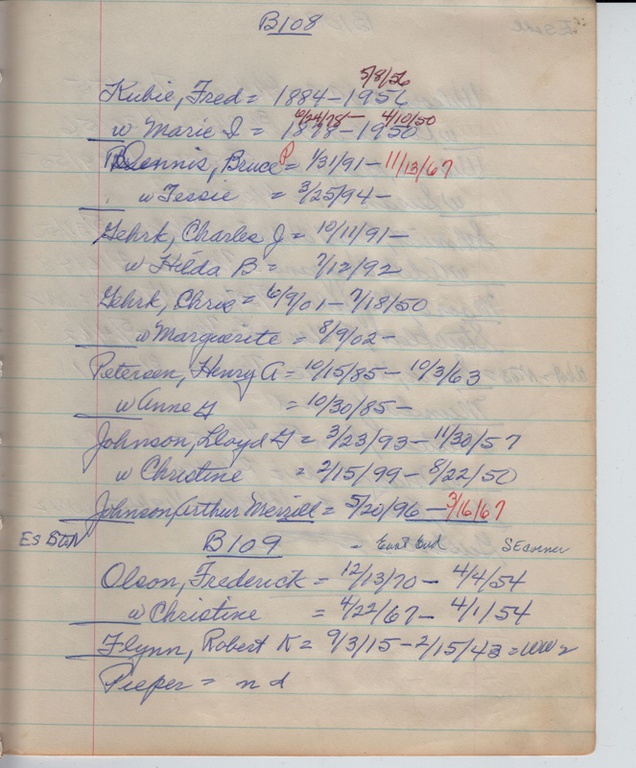 B108
5/8/56
Kubie, Fred = 1884-1956
6/24/78- 4/10/50
w Marie I = 1878-1950
Dennis, Bruce P = 1/31/91- 11/13/67
w Tessie = 3/25/94-
Gehrk, Charles J = 10/11/91-
w Hilda B = 7/12/92
Gehrk, Chris = 6/9/01- 7/18/50
w Marguerite = 8/9/02-
Petersen, Henry A = 10/15/85- 10/3/63
w Anne G = 10/30/85-
Johnson, Lloyd G = 3/23/93- 11/30/57
w Christine = 2/15/99- 8/22/50
Johnson, Arthur Merrill = 5/20/96- 3/16/67
B109 = East End
Olson, Frederick = 12/13/70- 4/4/54
w Christine = 4/22/67- 4/1/54
Flynn, Robert K = 9/3/15-2/15/43 = WW2
Pieper = n d